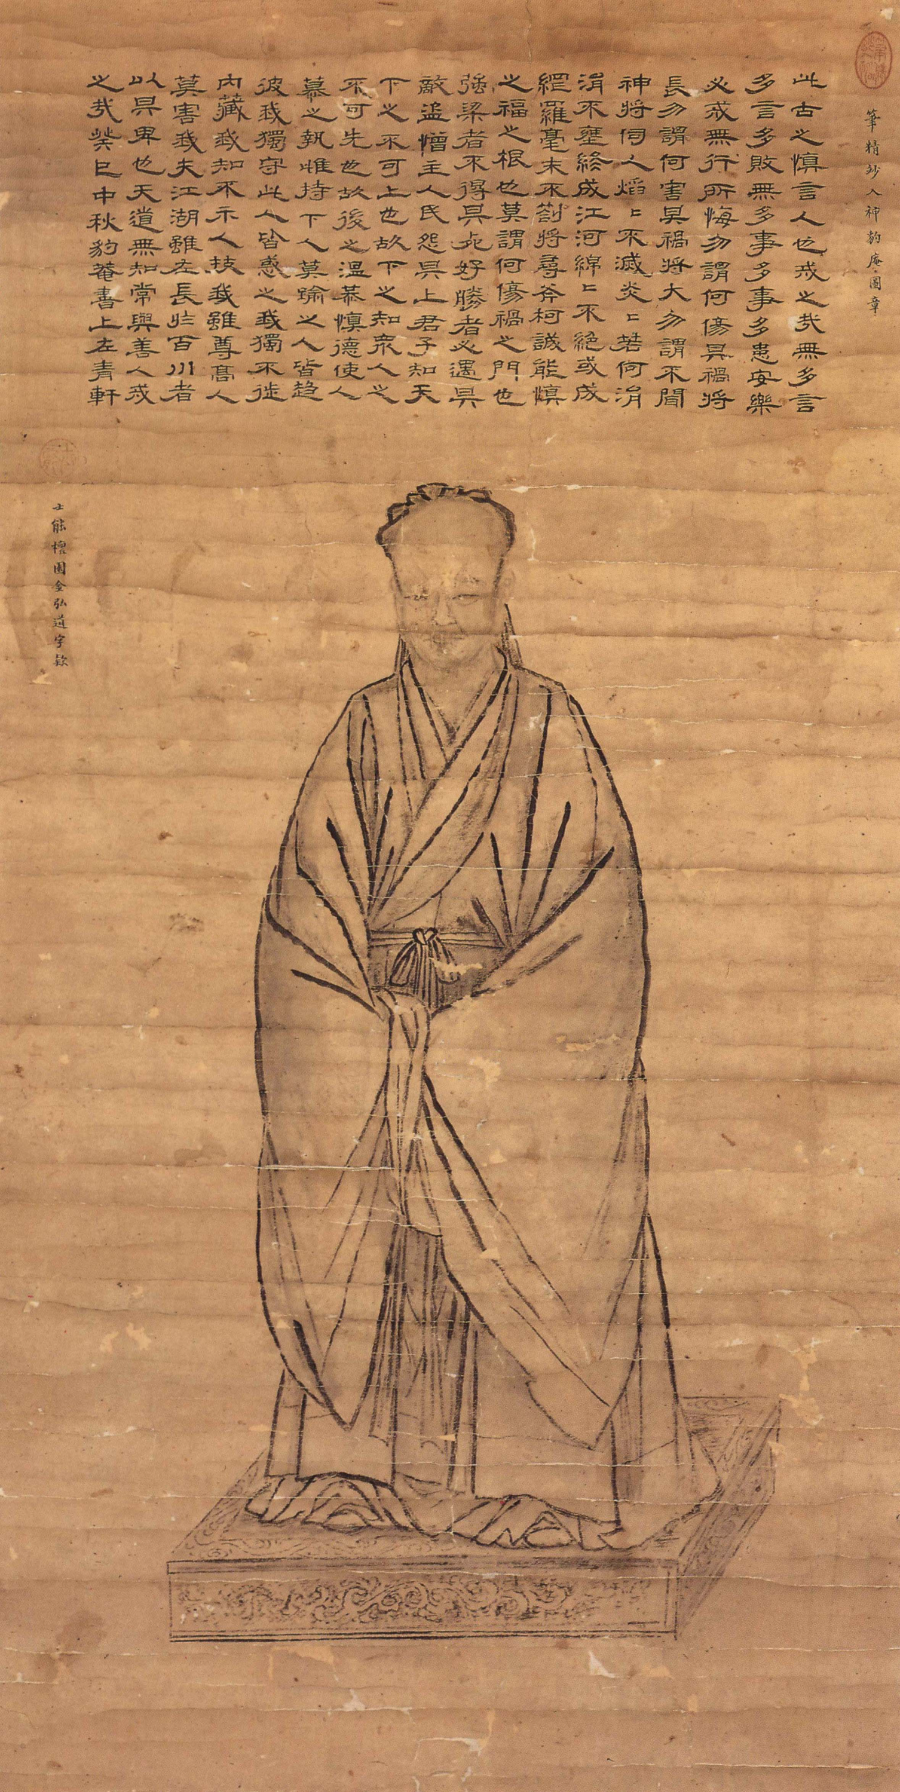 筆精妙入神豹庵圖章
此古之慎言人也戒之哉無多言
多言多敗無多事多事多患安樂
必戒無行所悔勿謂何傷其禍將
長勿謂何害其禍將大勿謂不聞
神將伺人焰〻不滅炎〻若何涓
涓不壅終成江河綿〻不絕或成
網羅毫末不劄將尋斧柯誠能慎
之福之根也莫謂何傷禍之門也
強梁者不得其死好勝者必遇其
敵盜憎主人民怨其上君子知天
下之不可上也故下之知衆人之
不可先也故後之溫恭慎德使人
慕之執雌持下人莫踰之人皆趨
彼我獨守此人皆惑之我獨不徙
內藏我知不示人技我雖尊高人
莫害我夫江湖雖左長於百川者
以其卑也天道無知常與善人戒
之哉癸巳中秋豹菴書上左青軒
士能檀園金弘道字款